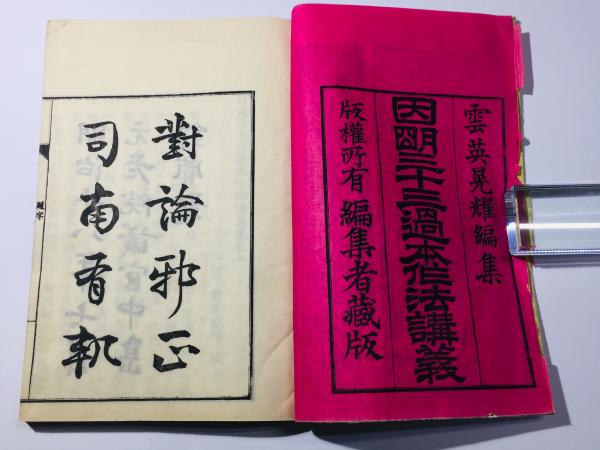 雲英晃耀編集
因明三十三過本作法講義
版權所有 編集者藏版
對論邪正
司南有軌
題字